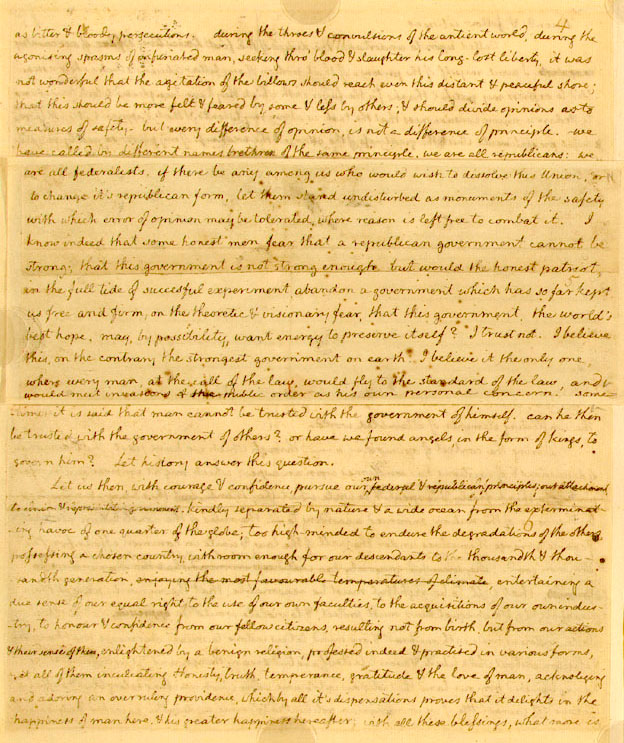 4
as bitter & bloody persecutions. during the throes & convulsions of the antient world, during the
agonising spasms of infuriated man, seeking thro' blood & slaughter his long-lost liberty, it was
not wonderful that the agitation of the billows should reach even this distant & peaceful shore;
that this should be more felt & feared by some & less by others, & should divide opinions as to
measures of safety. but every difference of opinion, is not a difference of principle. we
have called by different names brethren of the same principle. we are all republicans: we
are all federalists. if there be any among us who would wish to dissolve this Union, or
to change it's republican form, let them stand undisturbed as monuments of the safety
with which error of opinion may be tolerated, where reason is left free to combat it. I
know indeed that some honest men fear that a republican government cannot be
strong; that this government is not strong enough. but would the honest patriot,
in the full tide of succesful experiment abandon a government which has so far kept
us free and firm, on the theoretic & visionary fear, that this government, the world's
best hope, may, by possibility, want energy to preserve itself? I trust not. I believe
this, on the contrary, the strongest government on earth. I believe it the only one
where every man, at the call of the law, would fly to the standard of the law, and
would meet invasions of the public order as his own personal concern. some
times it is said that man cannot be trusted with the government of himself. can he then
be trusted with the government of others? or have we found angels, in the form of kings, to
govern him? Let history answer this question.
Let us then, with courage & confidence pursue our own federal & republican principles; our attachment
to union & representative government. kindly separated by nature & a wide ocean from the exterminat-
-ing havoc of one quarter of the globe; too high-minded to endure the degradations of the others,
possessing a chosen country, with room enough for our descendants to the thousandth & thou-
sandth generation, enjoying the most favourable temperatures of climate, entertaining a
due sense of our equal right to the use of our own faculties, to the acquisitions of our own indus-
-try, to honour & confidence from our fellow citizens, resulting not from birth, but from our actions
& their sense of them, enlightened by a benign religion, professed indeed & practised in various forms,
yet all of them inculcating honesty, truth, temperance, gratitude & the love of man, acknoleging
and adoring an overruling providence, which by all it's dispensations proves that it delights in the
happiness of man here, & his greater happiness hereafter; with all these blessings, what more is